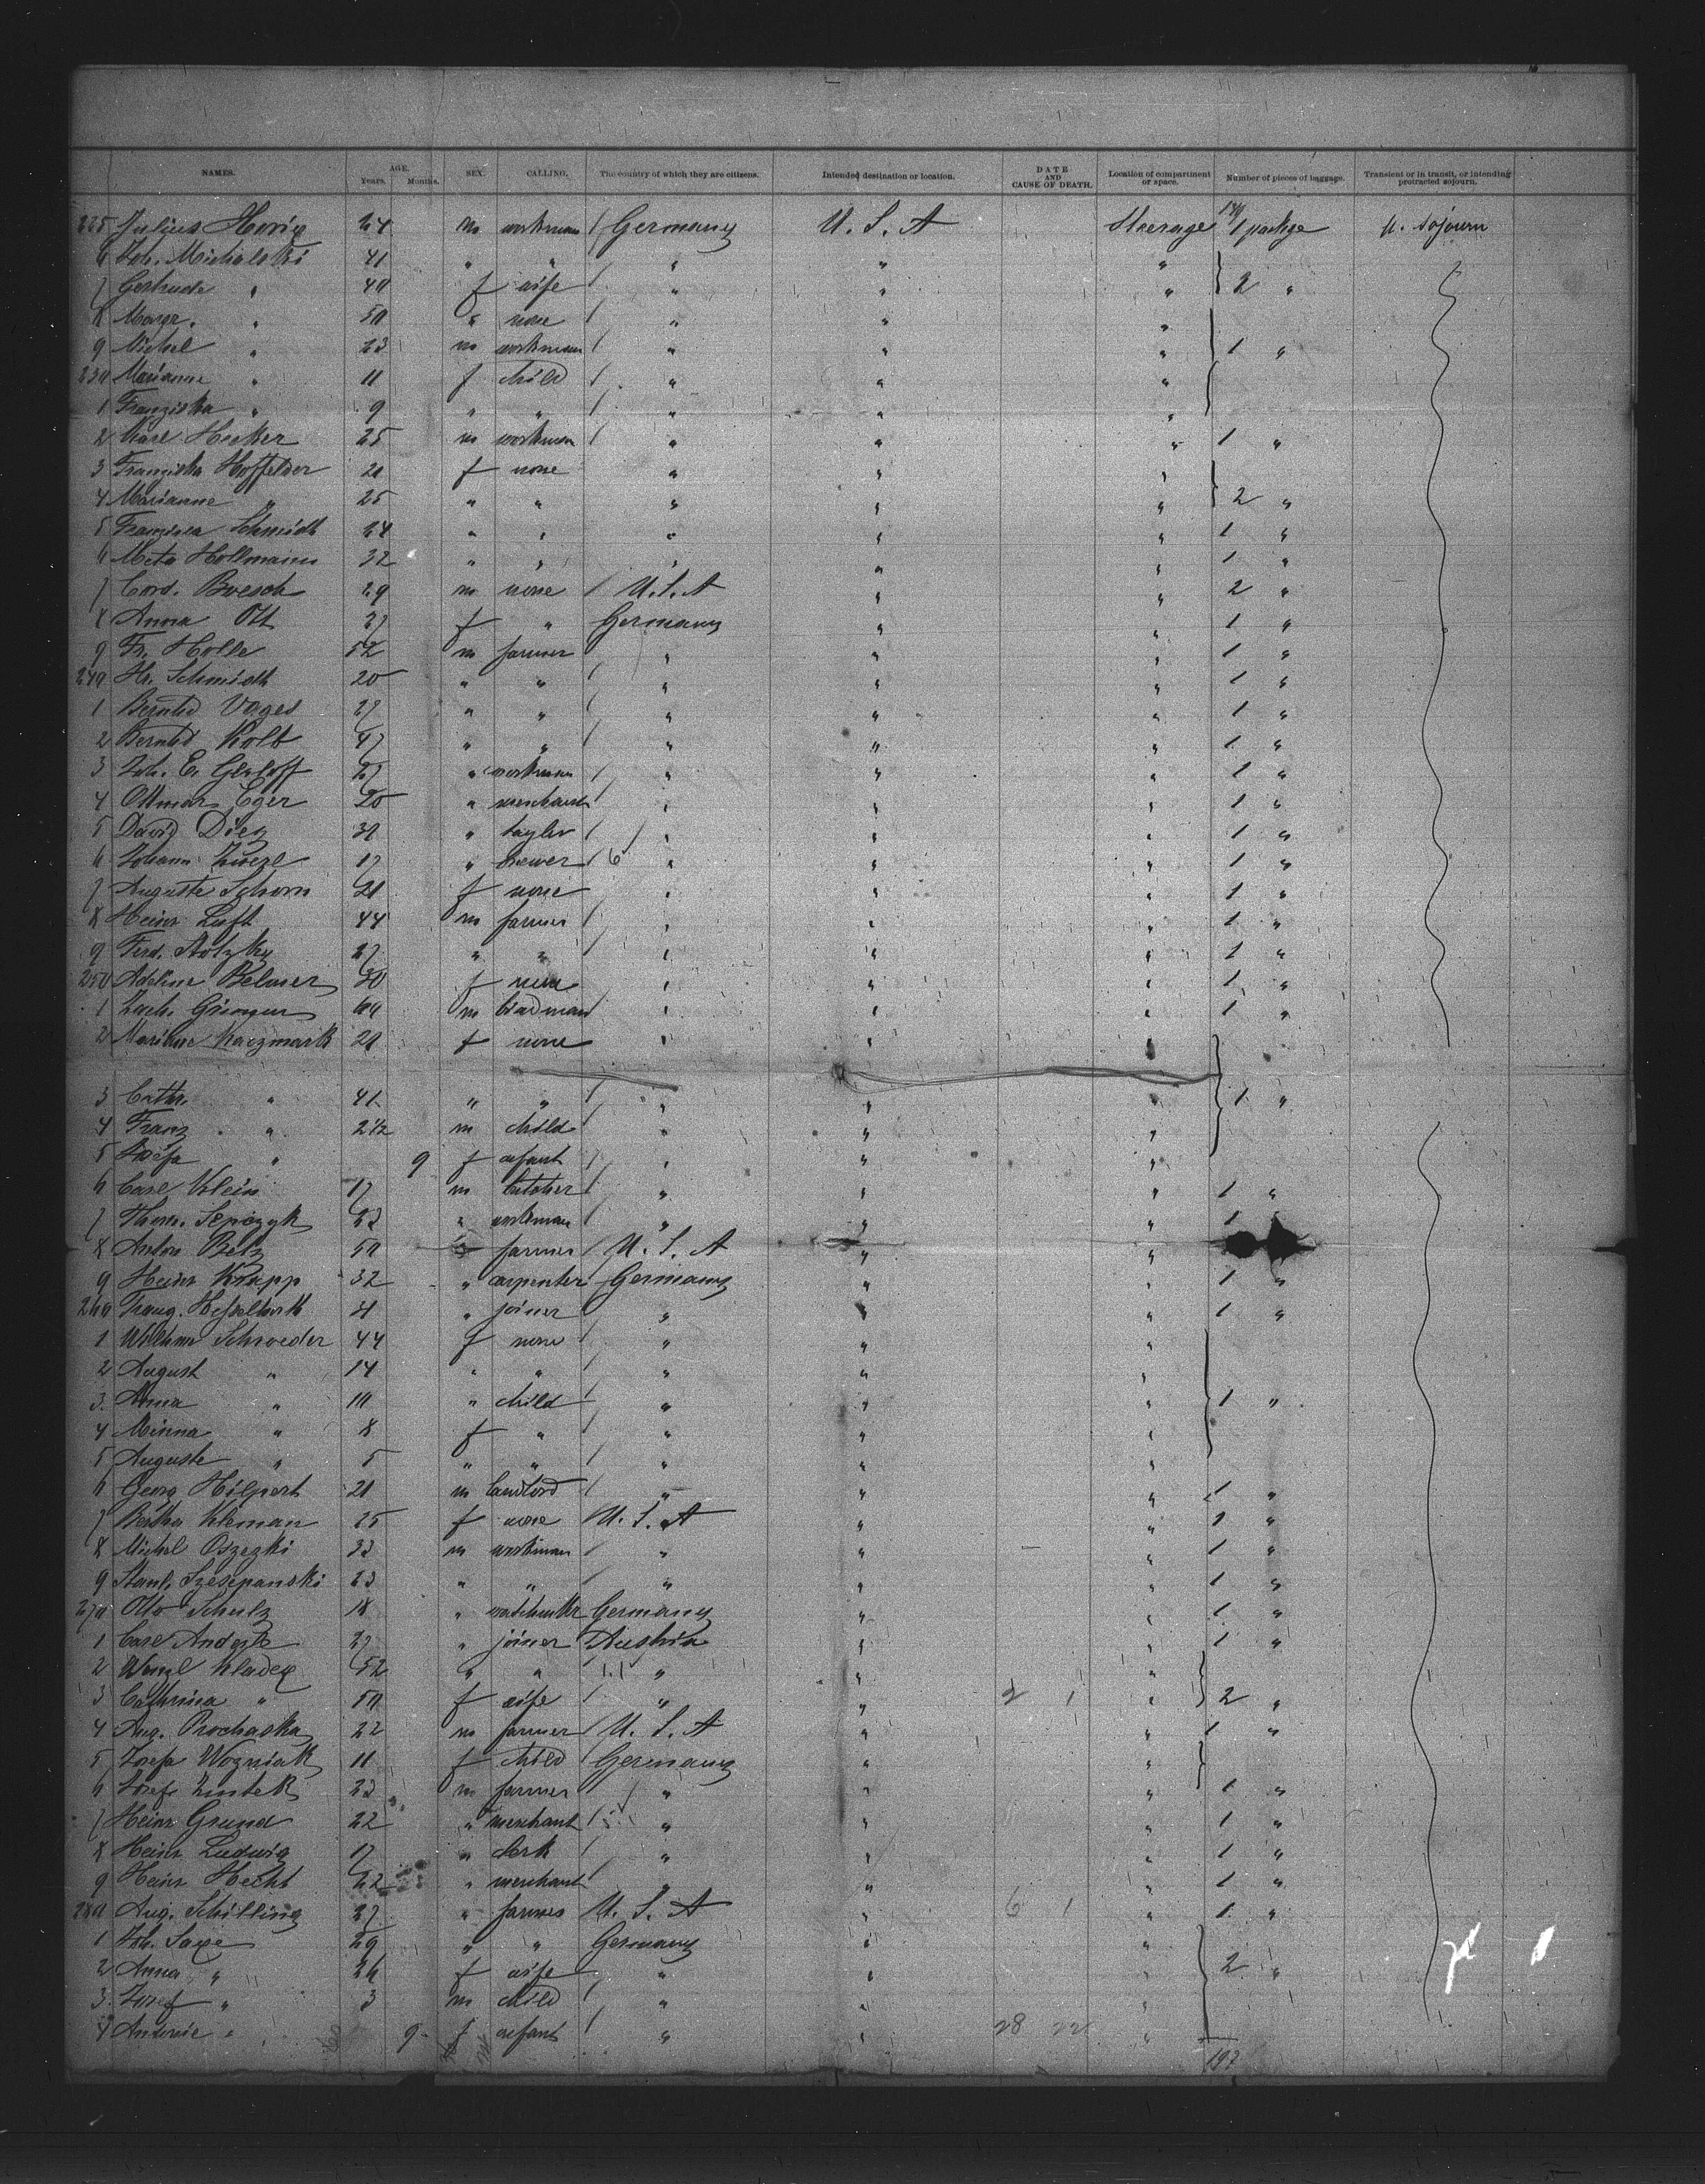 NAMES. AGE. Years. Months. SEX. CALLING. The country of which they are citizens. Intended destination or location. DATE AND CAUSE OF DEATH. Location of compartment or space. Number of pieces of baggage. Transient or in transit, or intending protracted sojourn.
225 Julius 24 m workman Germany U. S. A Steerage 1 p. sojourn
6 Joh. Michalski 41 " " " " "
7 Gertrude " 40 f wife " " " 2 "
8 Margr. " 50 " none " " "
9 Michel " 23 m workman " " " 1 "
230 Marianne " 11 f child " " "
1 Franziska " 9 " " " " "
2 Karl Hecker 25 m workman " " " 1 "
3 Franziska Hoffelder f none " " "
4 Marianne " 25 " " " " " 2 "
5 Schmidt 24 " " " " " 1 "
6 Meta Hollmann 32 " " " " " 1 "
7 Cord. Buesch 29 m none U. S. A " " 2 "
8 Anna Ott 27 f " Germany " " 1 "
9 Fr. Holle 52 m farmer " " " 1 "
240 Hr. Schmidt 20 " " " " " 1 "
1 Bernhd Vages 27 " " " " " 1 "
2 Bernhd Kolb 47 " " " " " 1 "
3 Joh. E. Gerloff 27 " workman " " " 1 "
4 Ottmar Eger 20 " merchant " " " 1 "
5 David Diez " taylor " " " 1 "
6 Johann 17 " brewer 6 " " " 1 "
7 Auguste Schorn f none " " " 1 "
8 Heinr Luft 44 m farmer " " " 1 "
9 Ferd. Stotzky 27 " " " " " 1 "
250 Adeline Belmer 30 f none " " " 1 "
1 Zach. m " " " 1 "
2 Marianne Kaczmark f none " " "
3 Cathr. " 41 " " " " " 1 "
4 Franz " 2 1/2 m child " " "
5 Josefa " 9 f infant " " "
6 Carl Klein 17 m butcher " " " 1 "
7 23 " workman " " " 1
8 Anton Betz 50 " farmer U. S. A " "
9 Heinr Krapp 32 " carpenter Germany " " 1 "
260 Traug. Hesselbarth " joiner " " " 1 "
1 Wilhme Schroeder 44 f none " " "
2 August " 14 " " " " "
3. Anna " 10 " child " " " 1 "
4 Minna " 8 f " " " "
5 Auguste " 5 " " " " "
6 Georg Hilpert m landlord " " " 1 "
7 Bertha Kleman 25 f none U. S. A " " 1 "
8 Michel 33 m workman " " " 1 "
9 Stanl. Szesepanski 23 " " " " " 1 "
270 Otto Schulz 18 " Germany " " 1 "
1 Carl 27 " joiner Austria " " 1 "
2 Wenzl Kladey 52 " " " " "
3 Cathrina " 50 f wife " " 2 1 " 2 "
4 Aug. Prochaska 22 m farmer U. S. A " " 1 "
5 Josefa Wozniak 11 f child Germany " "
6 Josef 23 m farmer " " " 1 "
7 Heinr Grund 22 " merchant " " " 1 "
8 Heinr Ludwig 17 " clerk " " " 1 "
9 Heinr Hecht 22 " merchant " " " 1 "
280 Aug. Schilling 27 " farmer U. S. A " 6 1 " 1 "
1 Joh. Saxe 29 " " Germany " "
2 Anna " 26 f wife " " " 2 "
3. Josef " 3 m child " " "
4 Antonie " 9 f infant " " 28 22 "
197